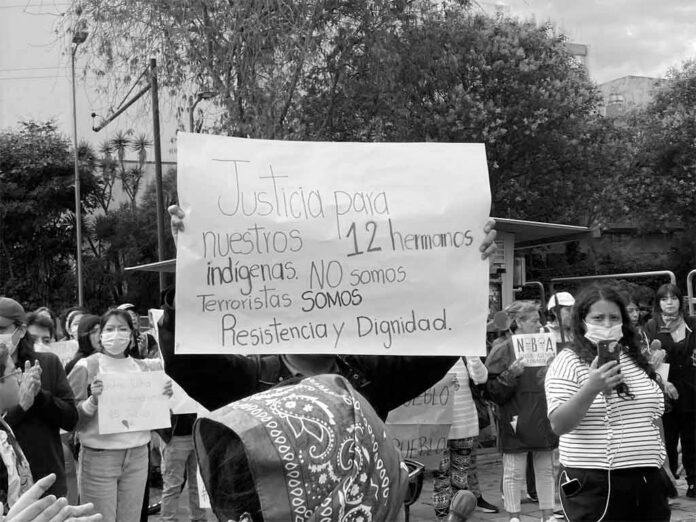 Justicia para
nuestros 12 hermanos
indígenas. NO somos
Terroristas SOMOS
Resistencia y Dignidad.
N B A
PUEBLO
PUEBLO